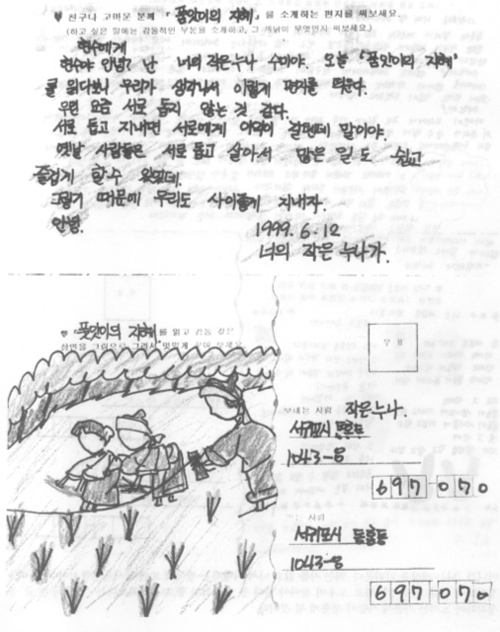 ♥ 친구나 고마운 분께 『품앗이의 지혜』를 소개하는 편지를 써보세요.
(하고 싶은 말에는 감동적인 부분을 소개하고, 그 까닭이 무엇인지 써보세요.)
현수에게
현수야 안녕? 난 너의 작은누나 수미야. 오늘 '품앗이의 지혜'
를 읽다보니 우리가 생각나서 이렇게 편지를 띄운다.
우린 요즘 서로 돕지 않는 것 같다.
서로 돕고 지내면 서로에게 이익이 될텐데 말이야.
옛날 사람들은 서로 돕고 살아서 많은 일도 쉽고
즐겁게 할수 있었데.
그렇기 때문에 우리도 사이좋게 지내자.
안녕.
1999. 6. 12
너의 작은 누나가.
♥ 『품앗이의 지혜』를 읽고 감동 깊은
장면을 그림으로 그려서 멋있게 보세요.
우표
보내는 사람 작은누나.
서귀포시 동홍동
1043-8
697-070
사람
서귀포시 동홍동
1043-8
697-070